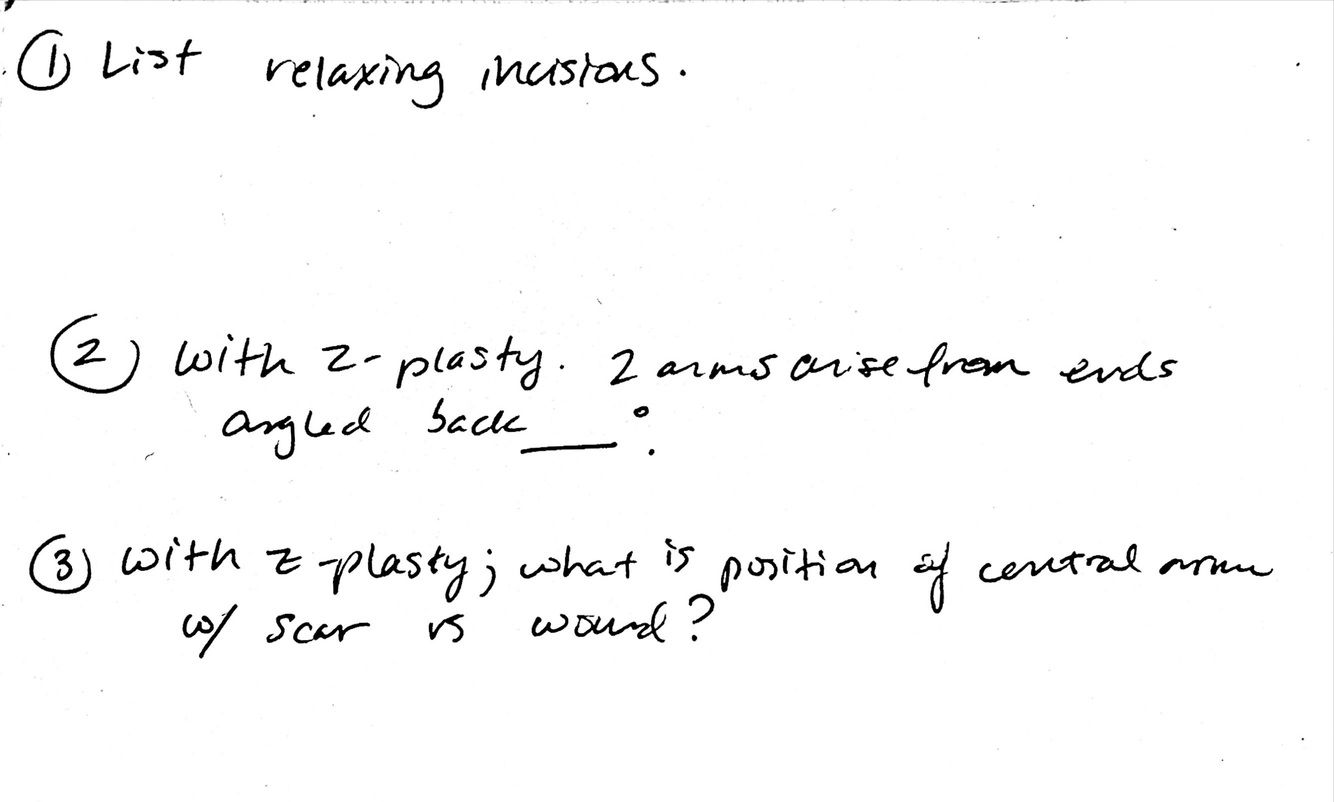 ① List relaxing incisions.
② with z-plasty. 2 arms arise from ends
angled back ___°.
③ with z-plasty; what is position of central arm
w/ scar vs wound?